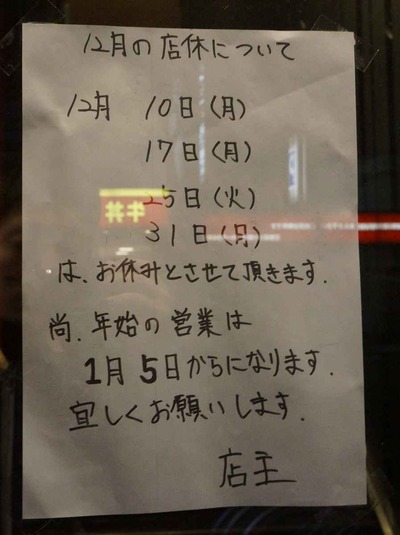 12月の店休について
12月 10日(月)
17日(月)
25日(火)
31日(月)
は、お休みとさせて頂きます.
尚、年始の営業は
1月5日からになります.
宜しくお願いします.
店主